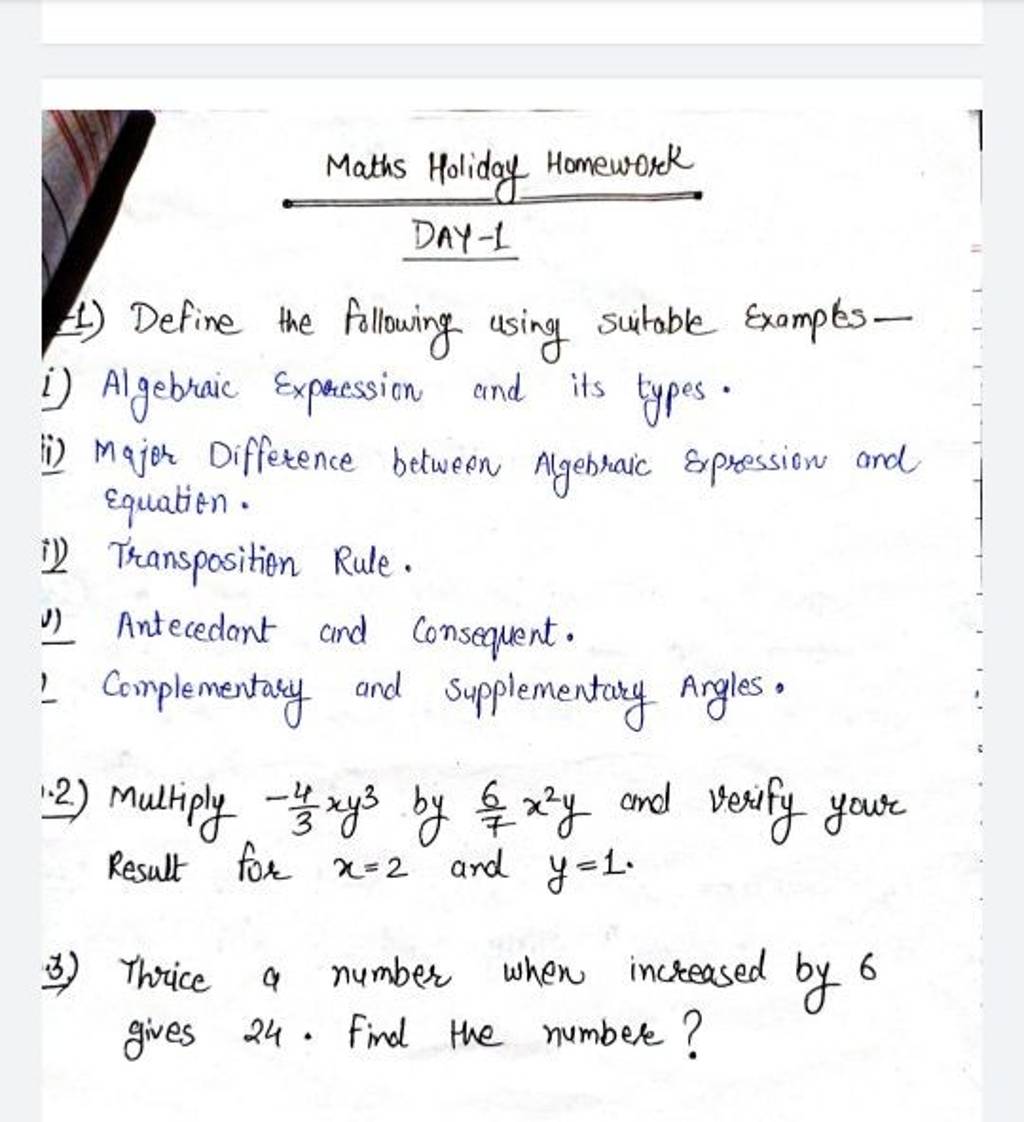 Maths Holiday Homework
DAY-1
1) Define the following using suitable Examples—
i) Algebraic Expression and its types.
ii) Major Difference between Algebraic Expression and
Equation.
ii) Transposition Rule.
v) Antecedant and Consequent.
Complementary and Supplementary Angles.
.2) Multiply -4/3 xy³ by 6/7 x²y and verify your
Result for x=2 and y=1.
3) Thrice a number when increased by 6
gives 24. Find the number?